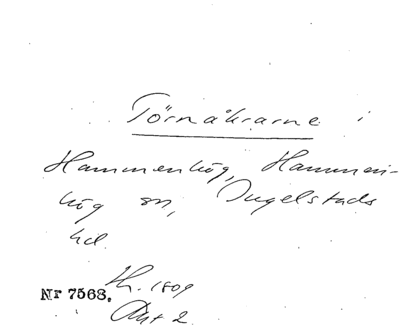 Törnåkrarne i
Hammenhög, Hammen-
hög sn, Ingelstads
hd.
Nr 7568. Lh. 1809
Akt 2.